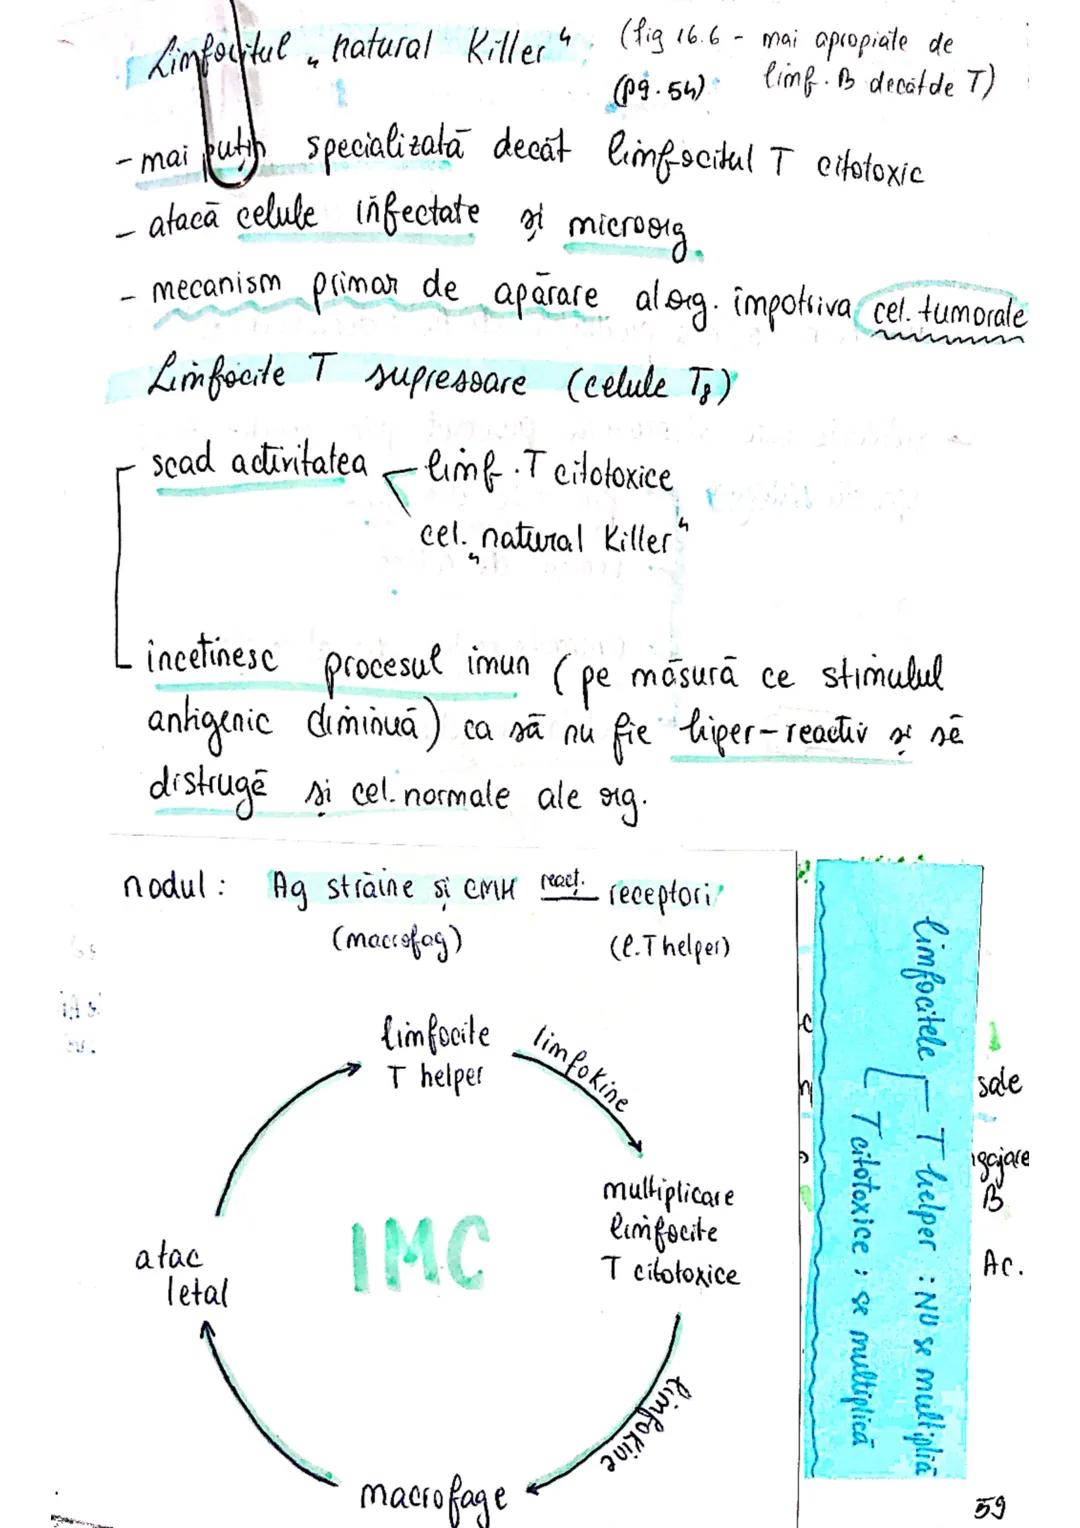 Limfocitul „natural Killer" (fig 16.6 - mai apropiate de
(pg. 54) limf. B decât de T)
- mai puțin specializată decât limfocitul T citotoxic
- atacă celule infectate și microorg.
- mecanism primar de apărare al org. împotriva cel. tumorale
Limfocite T supresoare (celule T8)
scad activitatea limf. T citotoxice
cel. „natural Killer"
încetinesc procesul imun (pe măsură ce stimulul
antigenic diminuă) ca să nu fie hiper-reactiv și să
distrugă și cel. normale ale org.
nodul: Ag străine și CMH react. receptori
(macrofag) (l. T helper)
limfocite
T helper
limfokine
multiplicare
limfocite
T citotoxice
limfokine
macrofage
atac
letal
IMC
limfocitele T helper : NU se multiplică
T citotoxice : se multiplică
sale
gajare
B
Ac.
59